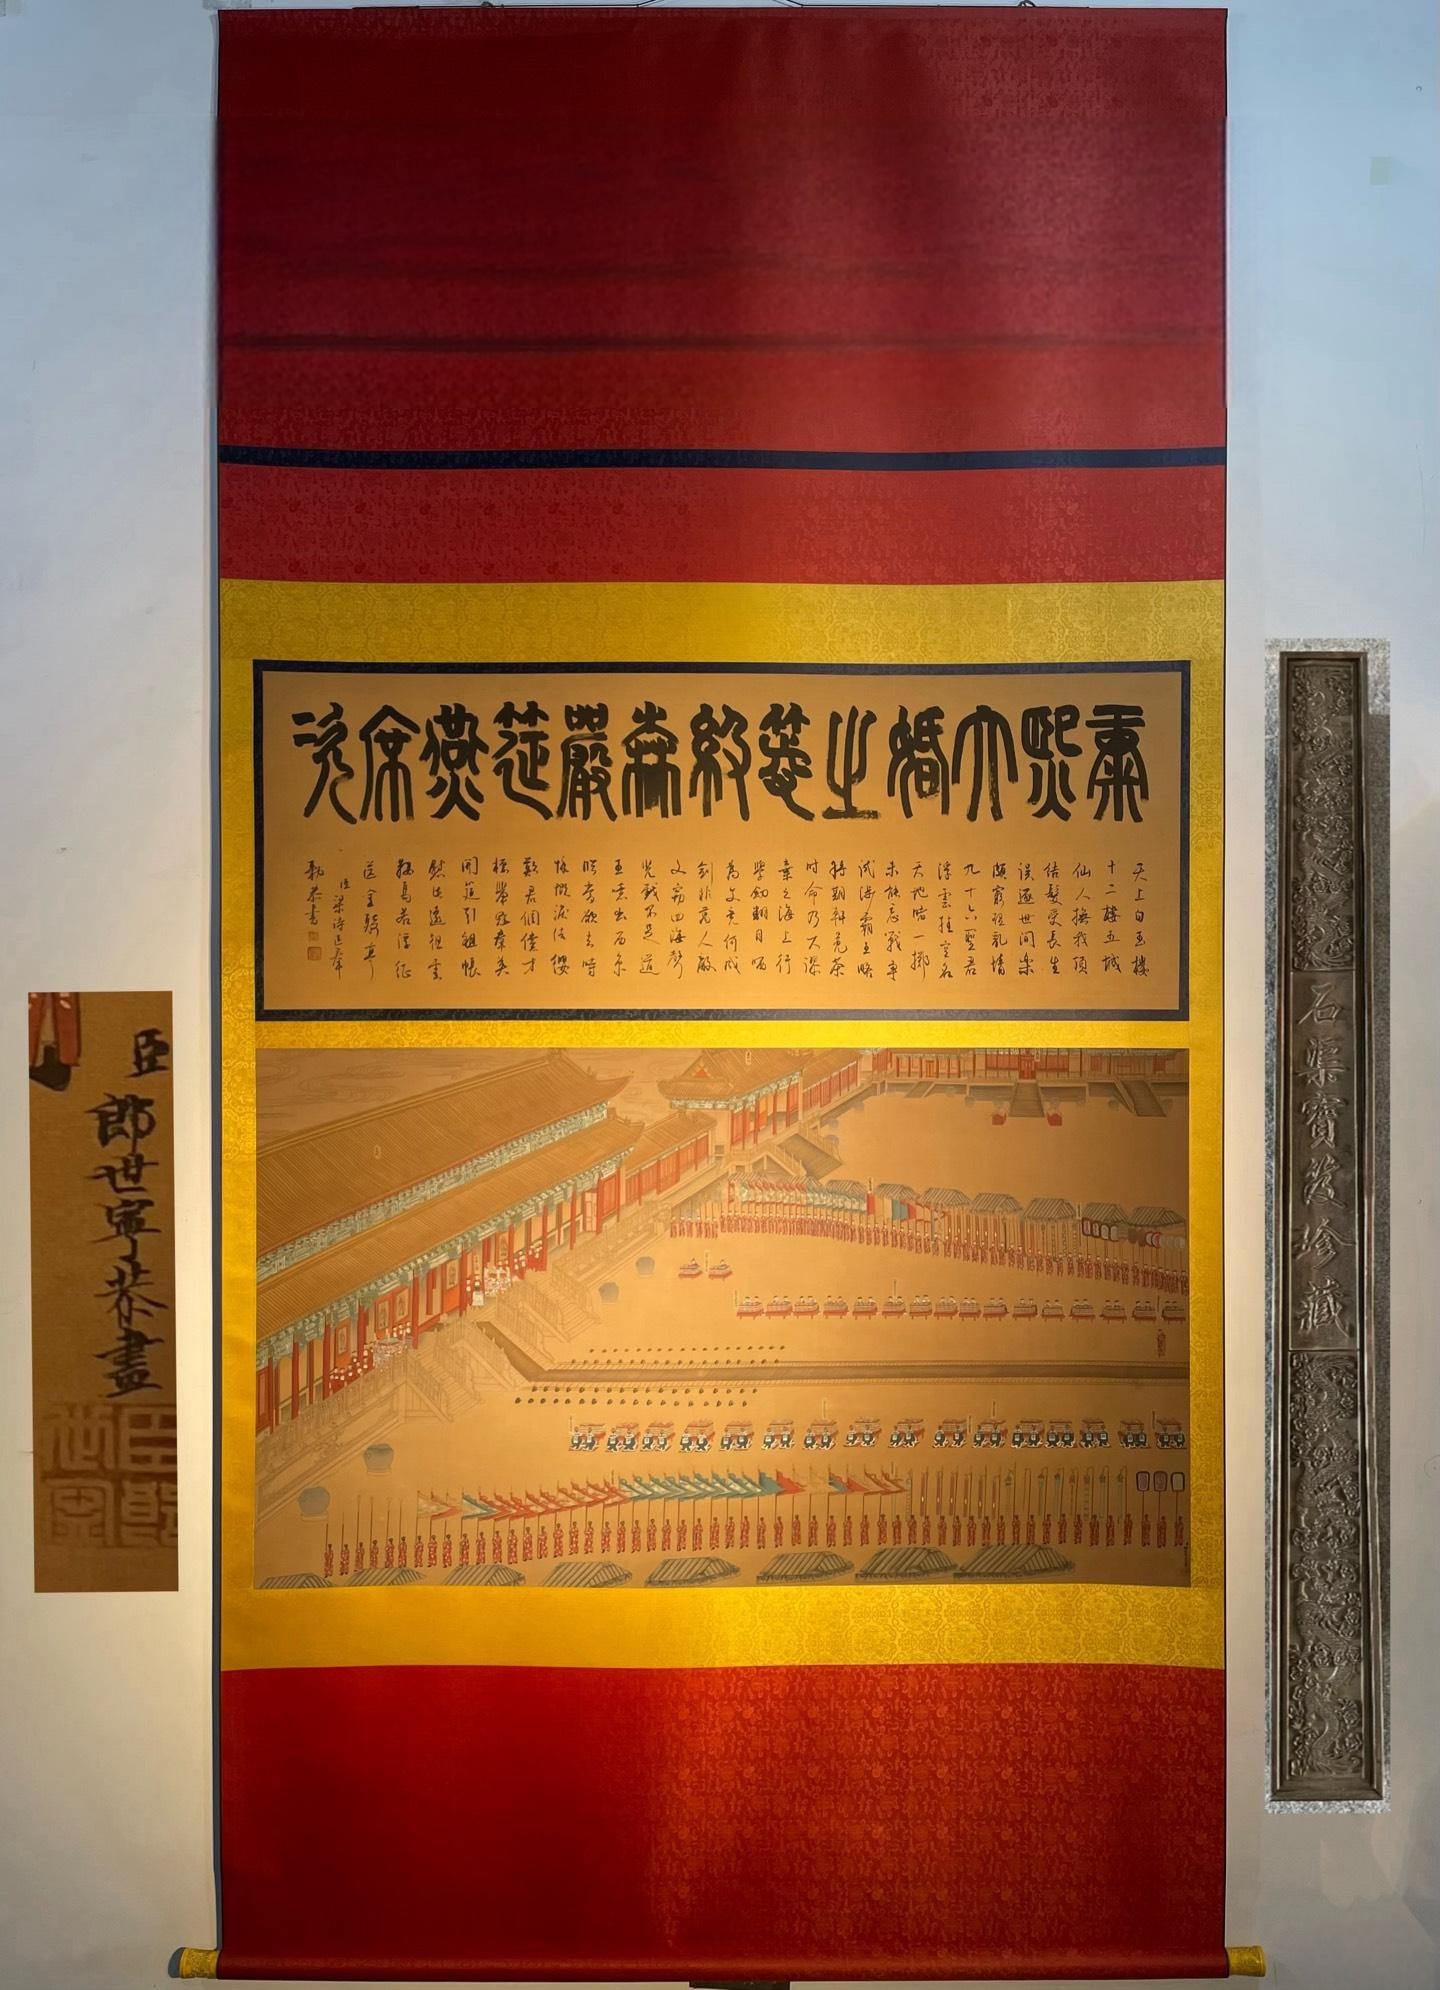 熙大婚之
約森嚴筵燕席次
天上白玉樓
十二樓五城
仙人撫我頂
結髮受長生
誤逐世間樂
頗窮理亂情
九十六聖君
浮雲挂空名
天地賭一擲
未能忘戰爭
試涉霸王略
將期軒冕榮
時命乃大謬
棄之海上行
學劍翻自哂
為文竟何成
劍非萬人敵
文竊四海聲
兒戲不足道
五噫出西京
臨當欲去時
慷慨淚沾纓
歎君倜儻才
標舉冠群英
開筵引祖帳
慰此遠徂雲
鞍馬若浮征
送余驃騎亭
臣梁詩正奉
敕恭書
臣郎世寧恭畫
臣郎世寧
石渠寶笈珍藏